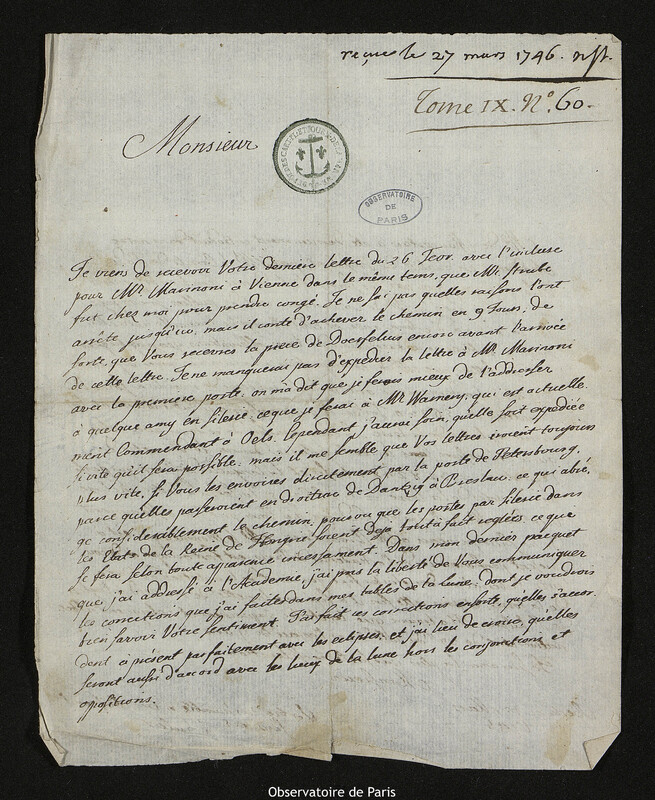 reçue le 27 mars 1746. nst.
Tome IX. N.º 60.
Monsieur
OBSERVATOIRE
DE
PARIS
Je viens de recevoir Votre derniere lettre du 26 Fevr. avec l'incluse
pour Mr. Marinoni à Vienne dans le même tems, que Mr. Strube
fut chez moi pour prendre congé. Je ne sai pas quelles raisons l'ont
arrêté jusqu'ici, mais il conte d'achever le chemin en 9 Jours, de
sorte, que Vous recevrés la piece de Doerfelius encore avant l'arrivée
de cette lettre. Je ne manquerai pas d'expedier la lettre à Mr. Marinoni
avec la premiere poste: on m'a dit que je ferois mieux de l'addresser
à quelque amy en Silesie, ce que je ferai à Mr. Warnery, qui est actuelle-
ment Commendant à Oels. Cependant j'aurai soin, qu'elle soit expediée
si vite qu'il sera possible: mais il me semble que Vos lettres iroient toujours
plus vite, si Vous les envoiés directement par la poste de Petersbourg,
parce qu'elles passeroient en droiture de Dantzig à Breslau, ce qui abré-
ge considerablement le chemin, pourvu que les postes par Silesie dans
les Etats de la Reine de Hongrie soient deja tout à fait reglées, ce que
se fera selon toute apparence incessament. Dans mon dernier pacquet
que j'ai addressé à l'Academie, j'ai pris la liberté de Vous communiquer
les corrections que j'ai faites dans mes tables de la Lune, dont je voudrois
bien savoir Votre sentiment. J'ai fait ces corrections ensorte, qu'elles s'accor-
dent à présent parfaitement avec les eclipses, et j'ai lieu de croire, qu'elles
seront aussi d'accord avec les lieux de la lune hors les conjonctions et
oppositions.
Observatoire de Paris